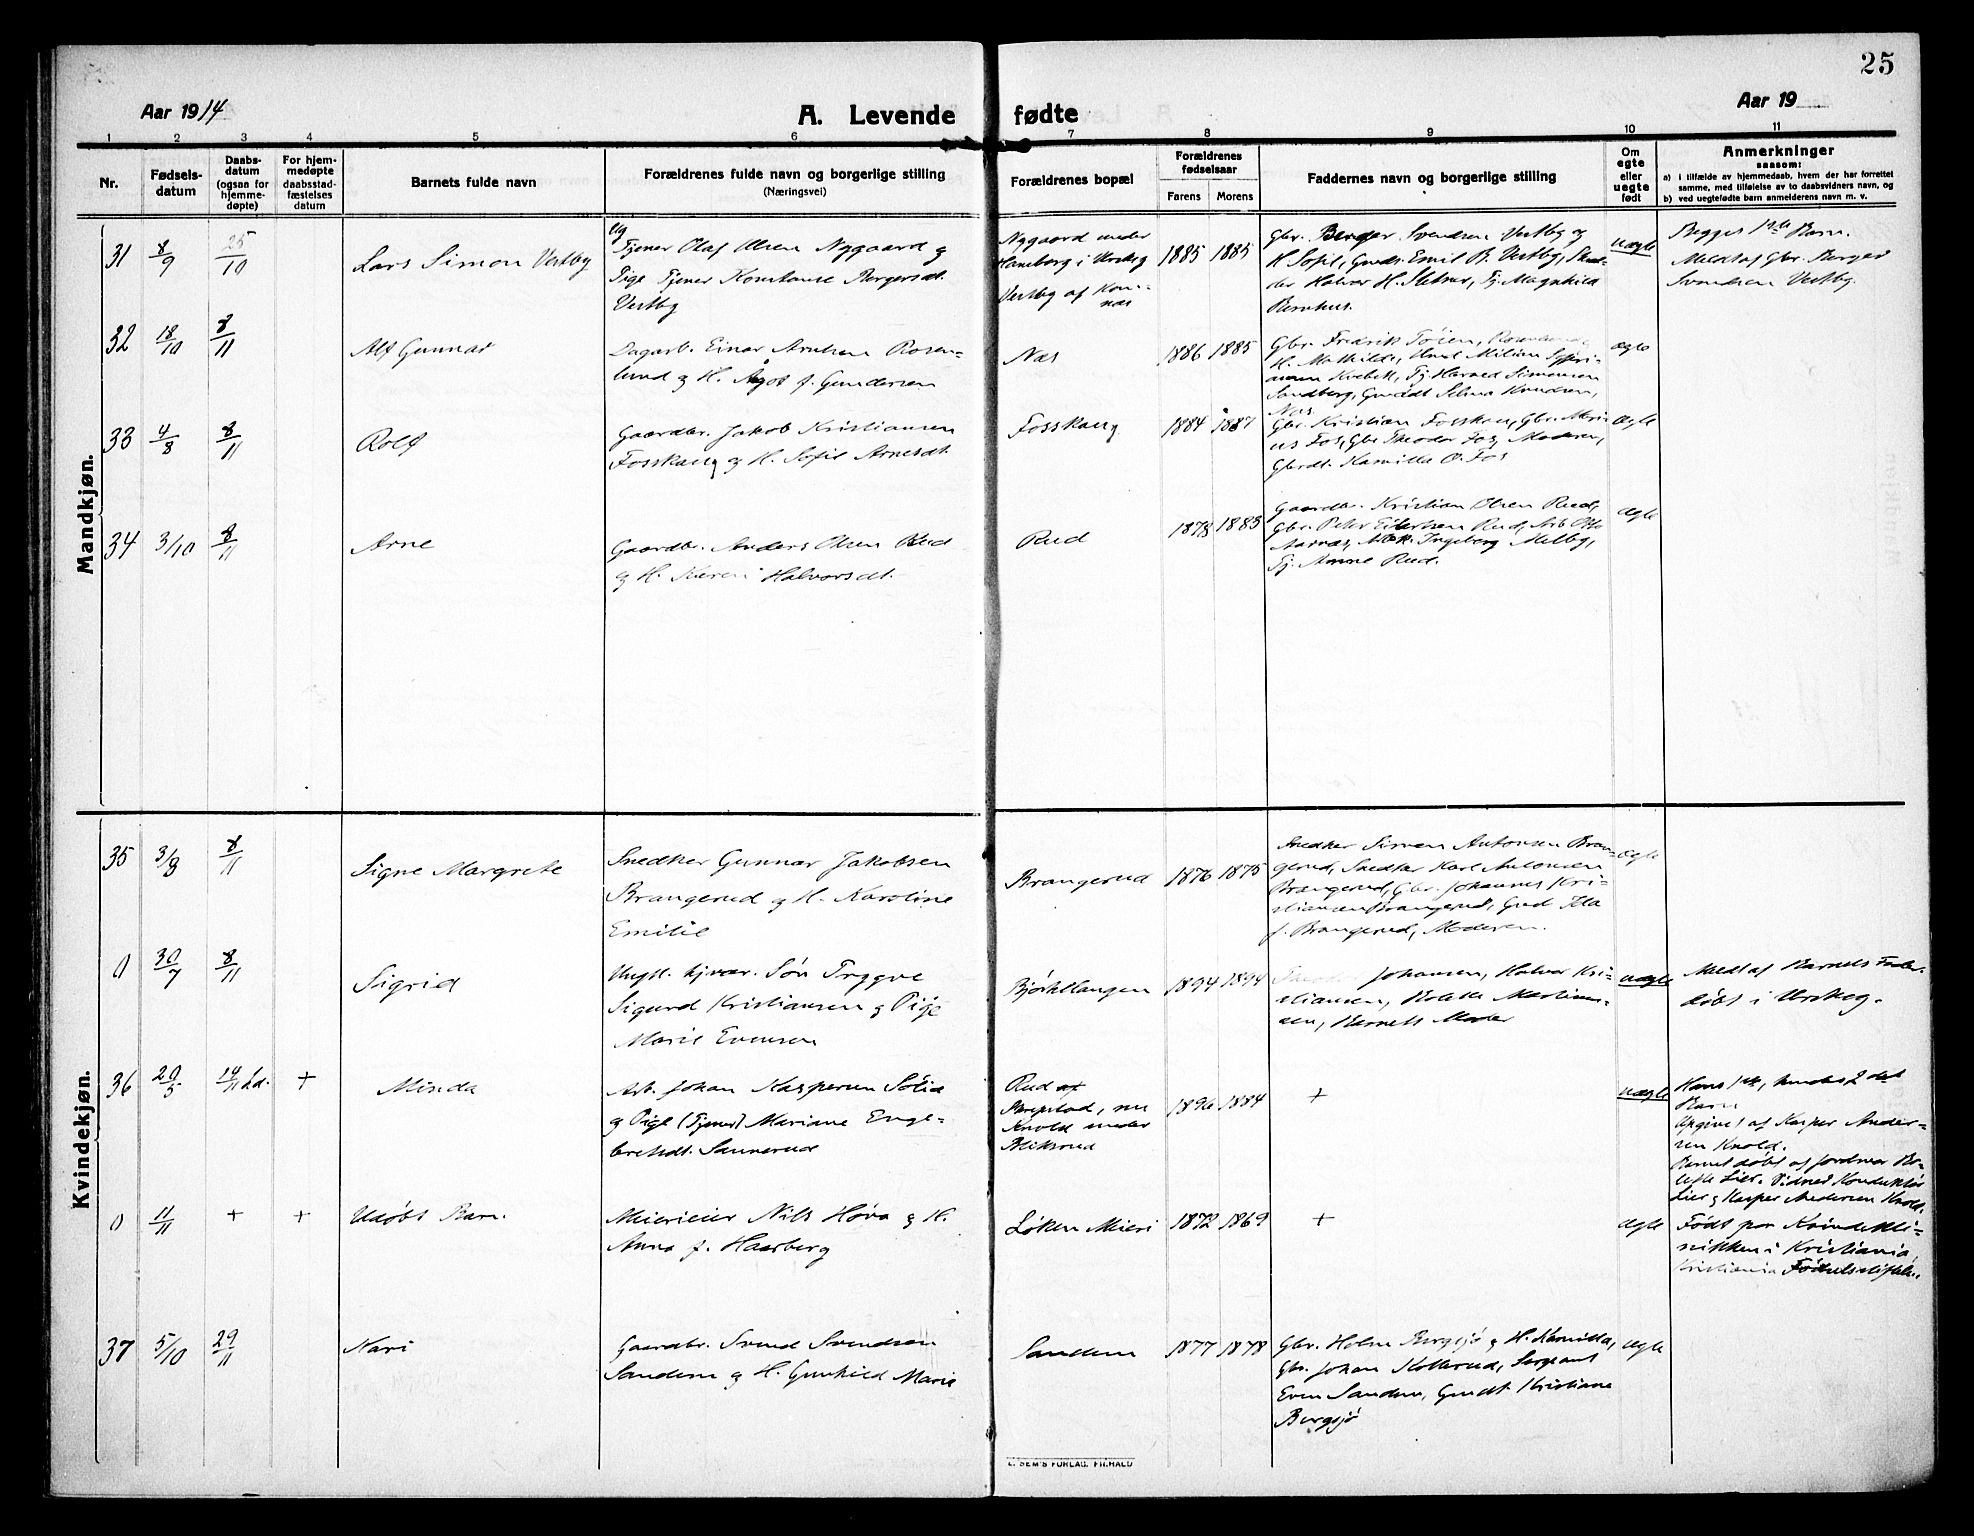 25
Aar 1914
A. Levende fødte
Aar 19
1 2 3 4 5 6 7 8 9 10 11
Nr.
Fødsels-
datum
Daabs-
datum
(ogsaa for
hjemme-
døpte)
For hjem-
medøpte
daabsstad-
fæstelses
datum
Barnets fulde navn
Forældrenes fulde navn og borgerlige stilling
(Næringsvei)
Forældrenes bopæl
Forældrenes
fødselsaar
Farens Morens
Faddernes navn og borgerlige stilling
Om
egte
eller
uegte
født
Anmerkninger
saasom:
a) i tilfælde av hjemmedaab, hvem der har forrettet
samme, med tilføielse av to daabsvidners navn, og
b) ved uegtefødte barn anmelderens navn m. v.
Mandkjøn.
31 8/9 25/10
Lars Simon Vestby
Ug
Tjener Olaf Olsen Nygaard og
Pige Tjener Konstanse Bergersdt.
Vestby
Nygaard under
Haneborg i Urskog
Vestby af
1885 1885
Gbr. Berger Svendsen Vestby og
H. Sofie, Gmds. Emil B. Vestby,
Halvor H. Tj. Magnhild
uægte
Begges 1ste Barn.
Meldt af Gbr. Berger
Svendsen Vestby.
32 18/10 8/11
Alf Gunnar
Dagarb. Einar Arntsen Rosen-
lund og H. Agot f. Gundersen
Næs
1886 1885
Gbr. Fredrik Tøien,
H. Mathilde,
Tj. Harald Simonsen
Sandberg, Selma Knudsen,
Næs
ægte
33 4/8 8/11
Rolf
Gaardbr. Jakob Kristiansen
Fosskaug og H. Sofie Arnesdt.
Fosskaug
1884 1887
Gbr. Kristian Gbr. Mari-
us Fos, Gbr. Theodor Fos, Moderen,
Gbrdt. Kamilla O. Fos
ægte
34 3/10 8/11
Arne
Gaardbr. Anders Olsen Rud
og H. Karen Halvorsdt.
Rud
1878 1883
Gaardbr. Kristian Olsen Rud,
Gbr. Peter Eilertsen Rud, Arb. Otto
Aarnæs, Ingeborg Melby,
Tj. Anne Rud.
ægte
Kvindekjøn.
35 3/8 8/11
Signe Margrete
Snedker Gunnar Jakobsen
Brangerud og H. Karoline
Emilie
Brangerud
1876 1875
Snedker Simen Antonsen Bran-
gerud, Snedker Karl Antonsen
Brangerud, Gbr. Johannes Kri-
stiansen Brangerud, Ida
f. Brangerud, Moderen.
ægte
0 30/7 8/11
Sigrid
Ungk. hjvær. Søn Tryggve
Sigurd Kristiansen og Pige
Marie Evensen
Bjørkelangen
1894 1894
Johansen, Halvor Kri-
stiansen, Martinus-
sen, Barnets Moder
uægte
Meldt af Barnets Fader.
døbt i Urskog.
36 20/5 14/11 hd. +
Minda
Arb. Johan Kaspersen Sølia
og Pige (Tjener) Mariane Enge-
bretsdt. Sannerud
Rud af
Skrepstad, nu
Knold under
Bliksrud
1896 1884
+
uægte
Hans 1ste, hendes 2det
Barn
Opgivet af Kasper Ander-
sen Knold.
Barnet døbt af Jordmor Bo-
lette Lier. Vidner Konduktør
Lier og Kasper Andersen Knold.
0 11/11 + +
Udøbt Barn.
Meierieier Nils Høva og H.
Anna f. Haarberg
Løken Mieri
1872 1869
+
ægte
Født paa Kvindekli-
nikken i Kristiania,
Kristiania Fødselsstiftelse.
37 5/10 29/11
Kari
Gaardbr. Svend Svendsen
Sandem og H. Gunhild Marie
Sandem
1877 1878
Gbr. Holm Bergsjø og H. Kamilla,
Gbr. Johan Kollerud, Sergeant
Even Sandem, Gmdt. Kristiane
Bergsjø
ægte
E. SEM'S FORLAG, FR.HALD